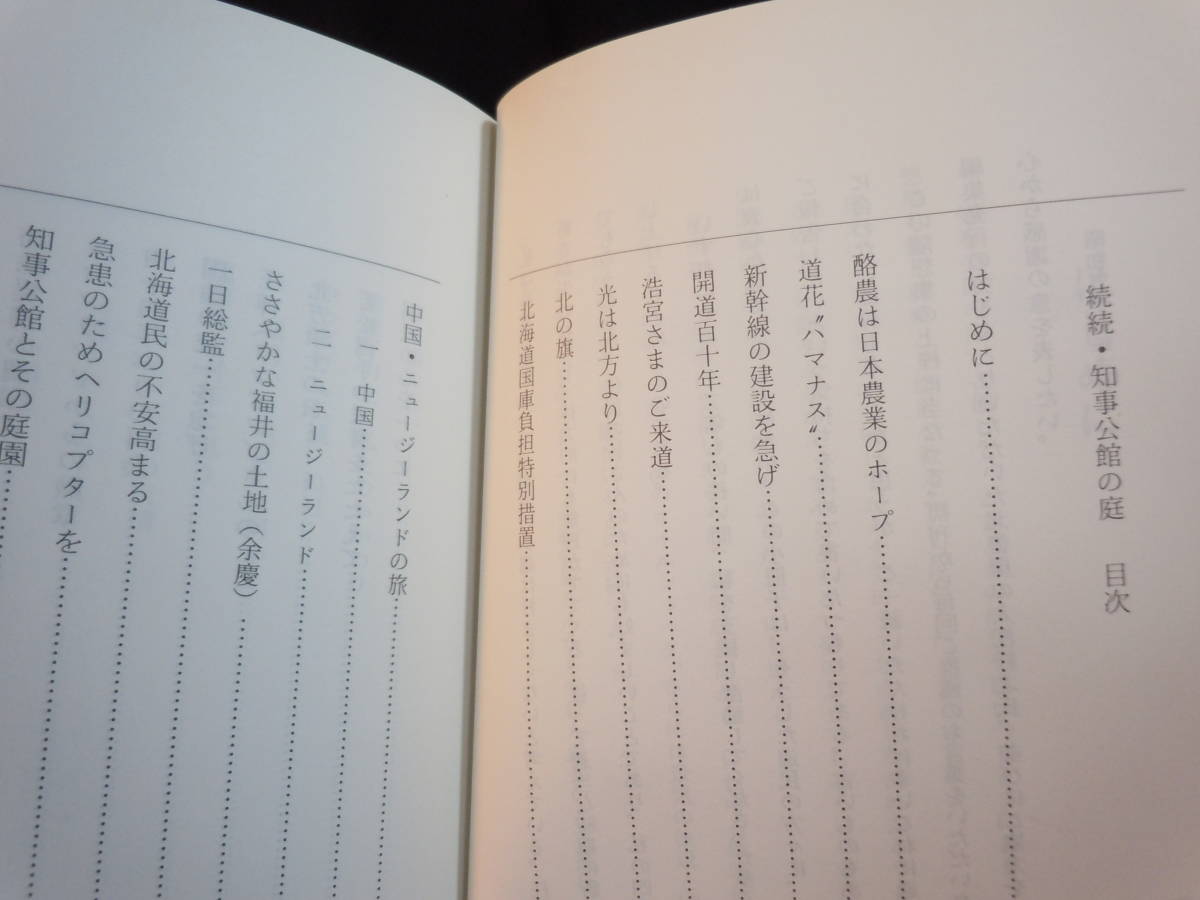 続続・知事公館の庭　目次
はじめに
酪農は日本農業のホープ
道花〝ハマナス〟
新幹線の建設を急げ
開道百十年
浩宮さまのご来道
光は北方より
北の旗
北海道国庫負担特別措置
中国・ニュージーランドの旅
一　中国
二　ニュージーランド
ささやかな福井の土地（余慶）
一日総監
北海道民の不安高まる
急患のためヘリコプターを
知事公館とその庭園